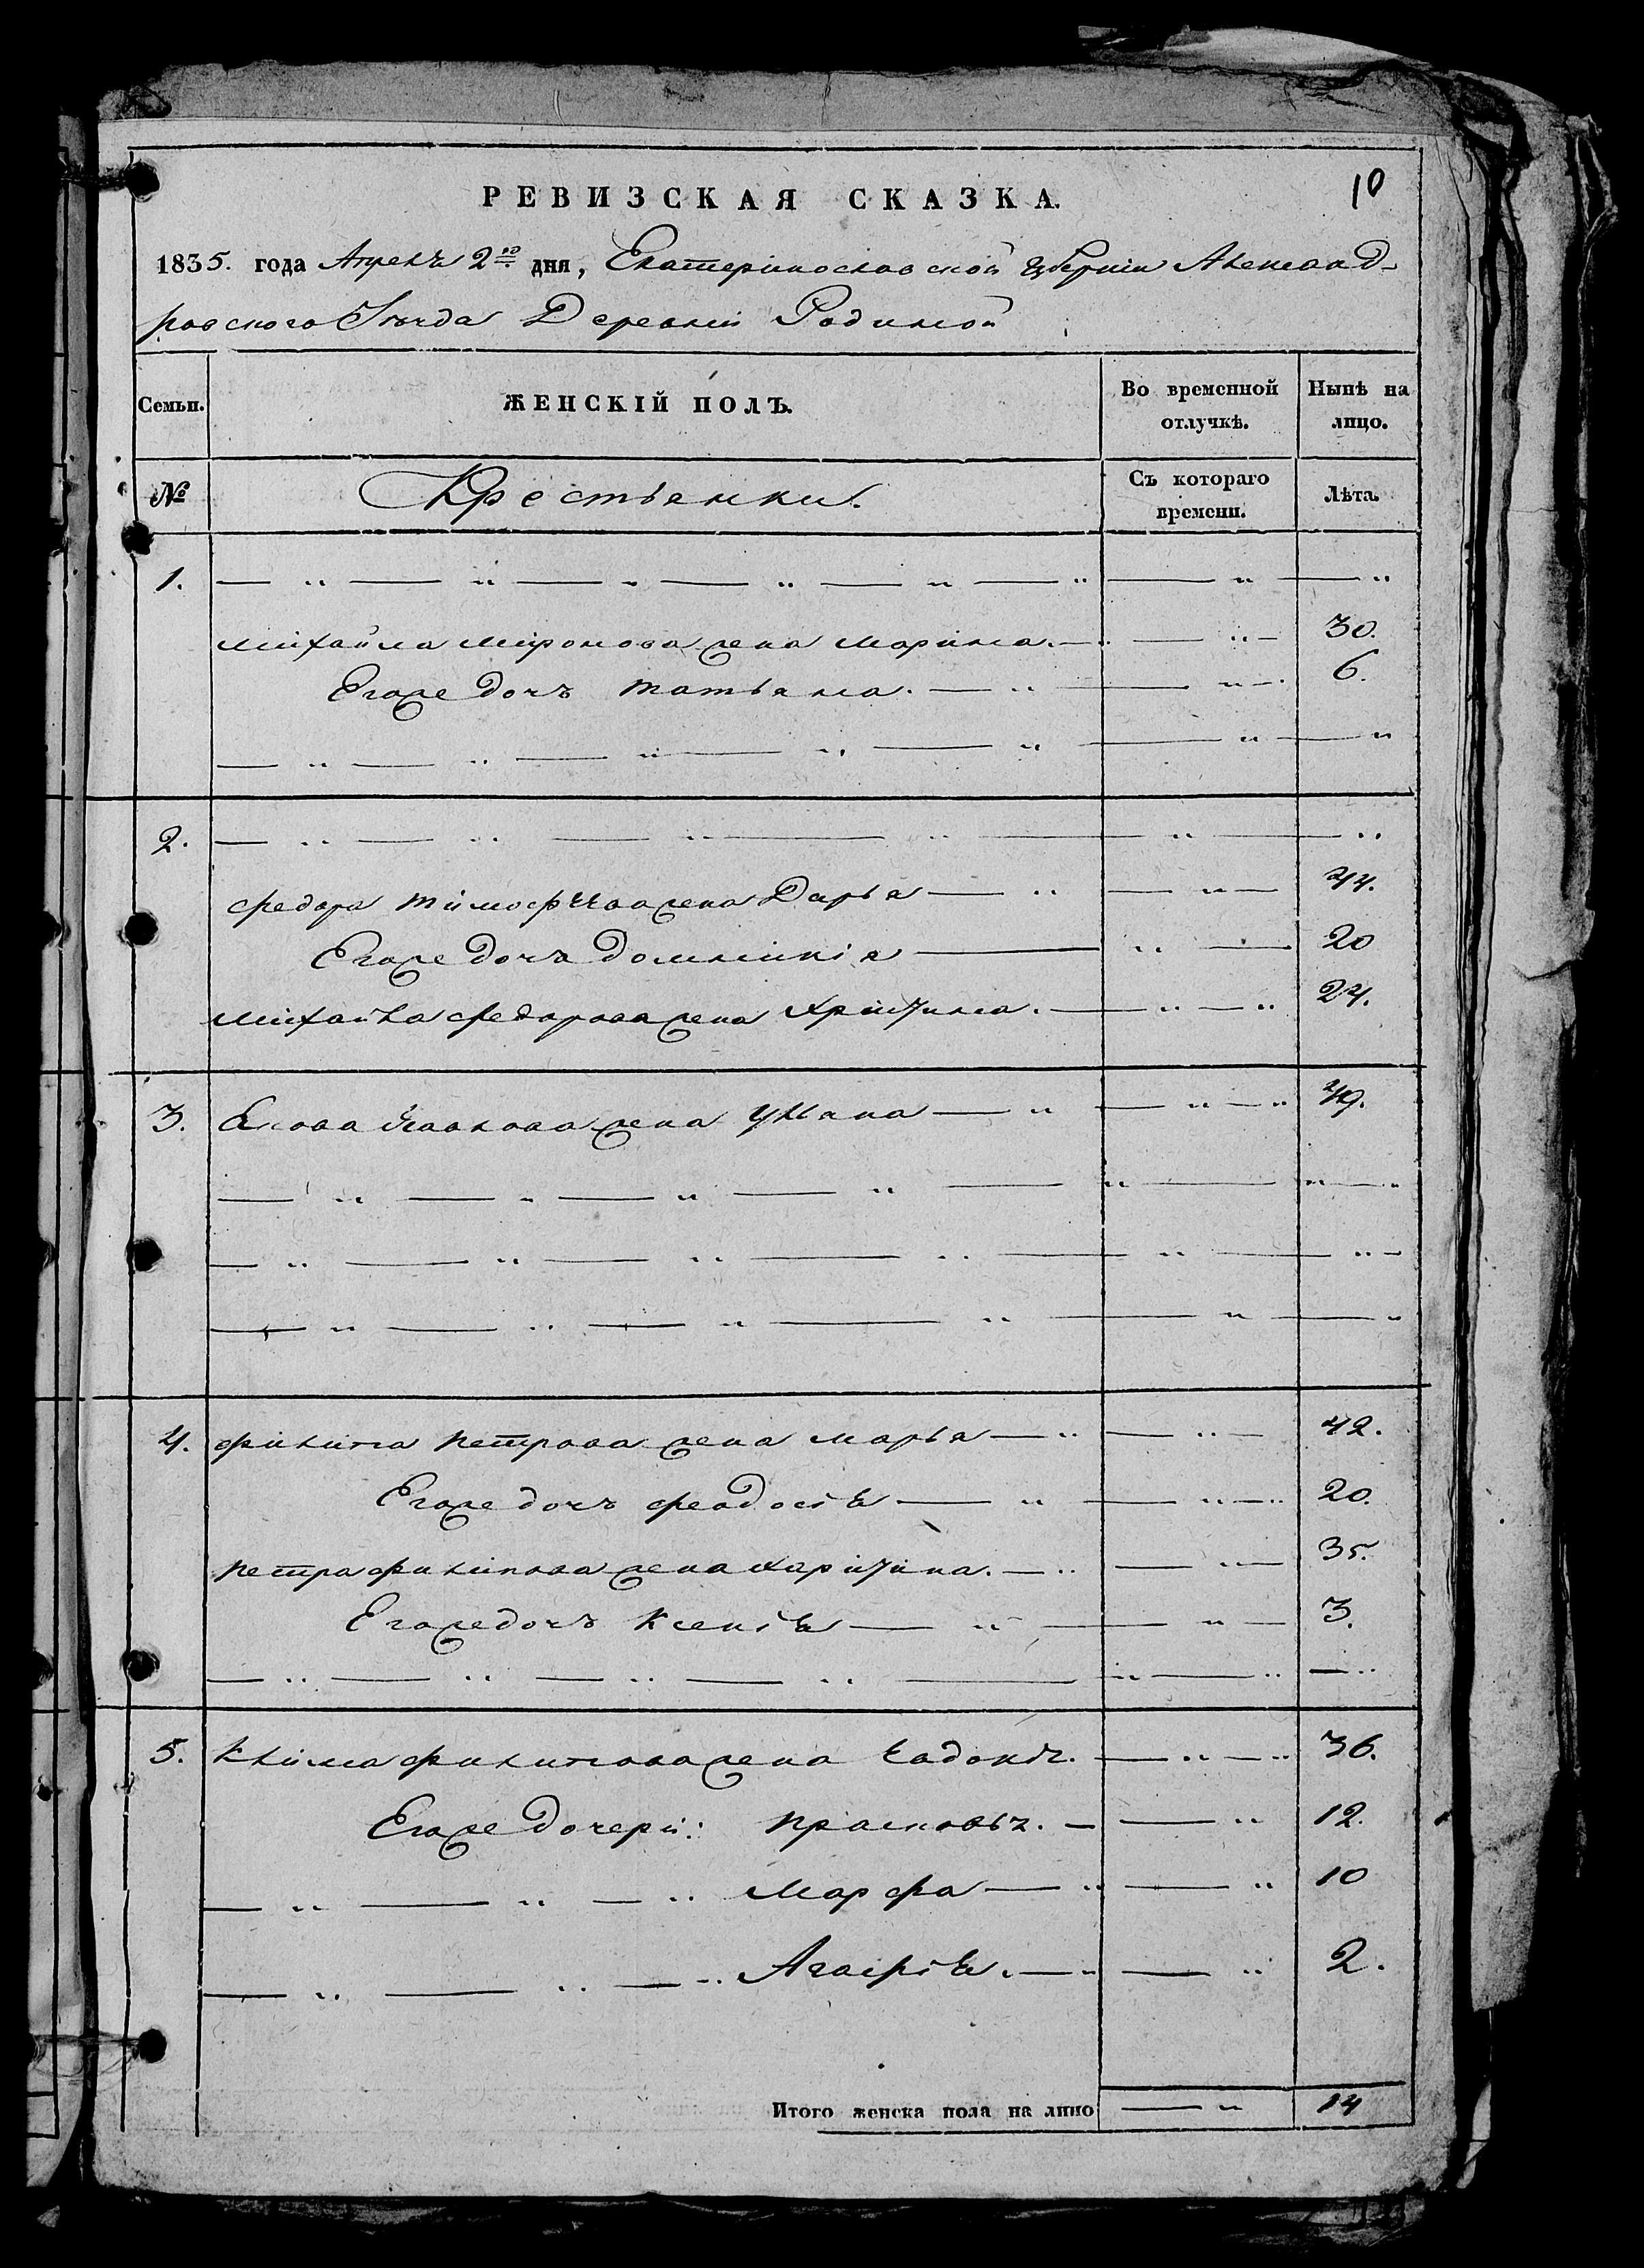 РЕВИЗСКАЯ СКАЗКА.
10
1835. года Апреля 2го дня, Екатеринославской губернии Александ-
ровского Уезда Деревни Родиной
Семьи.
ЖЕНСКІЙ ПОЛЪ.
Во временной отлучкѣ.
Нынѣ на лицо.
№
Крестьянки.
Съ котораго времени.
Лѣта.
1. — „ — „ — „ — „ — „ — „ — „ — „
михайла миронова жена марина. — „ — 30.
Его же дочь татьяна. — „ — „ — 6.
— „ — „ — „ — „ — „ — „ — „
2. — „ — „ — „ — „ — „ — „
федора тимофеева жена Дарья — „ — „ — 44.
Его же дочь домникія — „ — 20
михайла федорова жена христина. — „ — „ 24.
3. жена — „ — „ — „ 49.
— „ — „ — „ — „ — „ — „
— „ — „ — „ — „ — „ — „
— „ — „ — „ — „ — „ — „
4. филипа петрова жена марья — „ — „ — 42.
Его же дочь феодосія — „ — „ — „ 20.
петра филипова жена христина. — „ — „ — 35.
Его же дочь ксенія — „ — „ — 3.
— „ — „ — „ — „ — „ — „ — „
5. клима филипова жена — „ — „ 36.
Его же дочери: прасковья. — — „ 12.
— „ — „ — „ марфа — „ — „ 10
— „ — „ — „ Агафія. — „ — „ 2.
Итого женска пола на лицо — „ 14